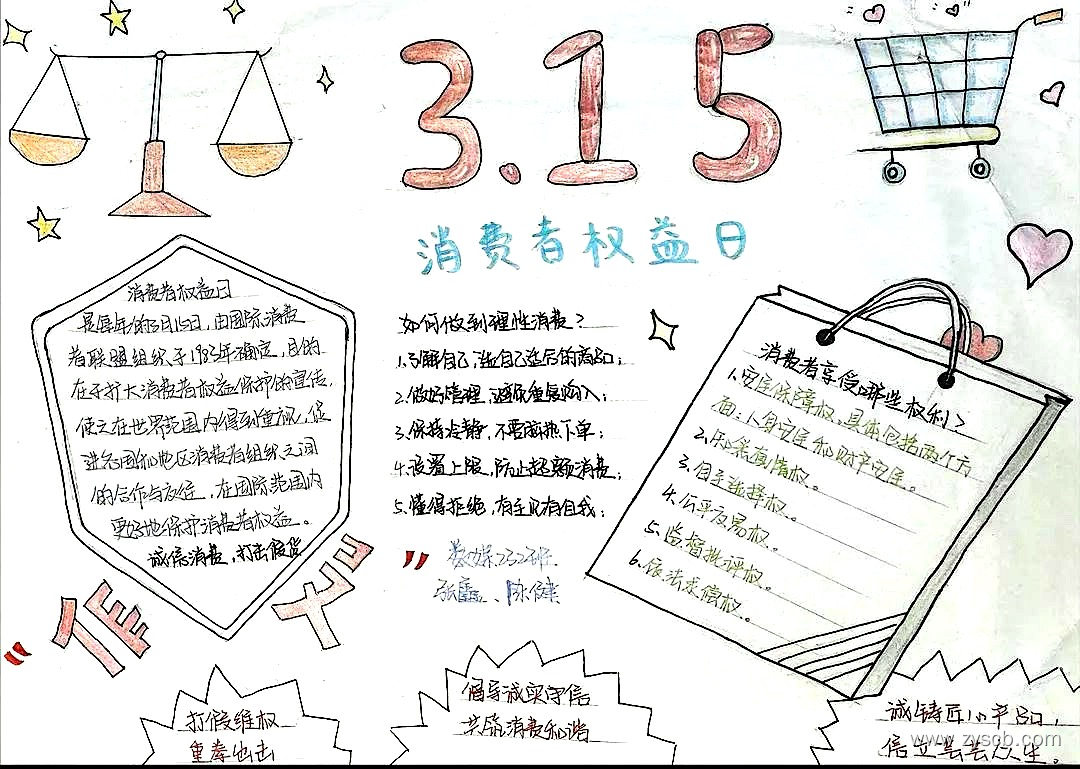 3.15
消费者权益日
消费者权益日
是每年的3月15日,由国际消费
者联盟组织于1983年确定,目的
在于扩大消费者权益保护的宣传,
使之在世界范围内得到重视,促
进各国和地区消费者组织之间
的合作与交往,在国际范围内
更好地保护消费者权益。
诚信消费,打击假货
如何做到理性消费?
1.了解自己,选自己适合的商品;
2.做好管理,避免重复购入;
3.保持冷静,不要脑热下单;
4.设置上限,防止超额消费;
5.懂得拒绝,有主见有自我;
数媒232班
张鑫、陈健
消费者享受哪些权利?
1.安全保障权,具体包括两个方
面:人身安全和财产安全。
2.知悉真情权。
3.自主选择权。
4.公平交易权。
5.监督批评权。
6.依法求偿权。
打假维权
重拳出击
倡导诚实守信
共筑消费和谐
诚铸匠心产品,
信立芸芸众生。
www.zyscb.com